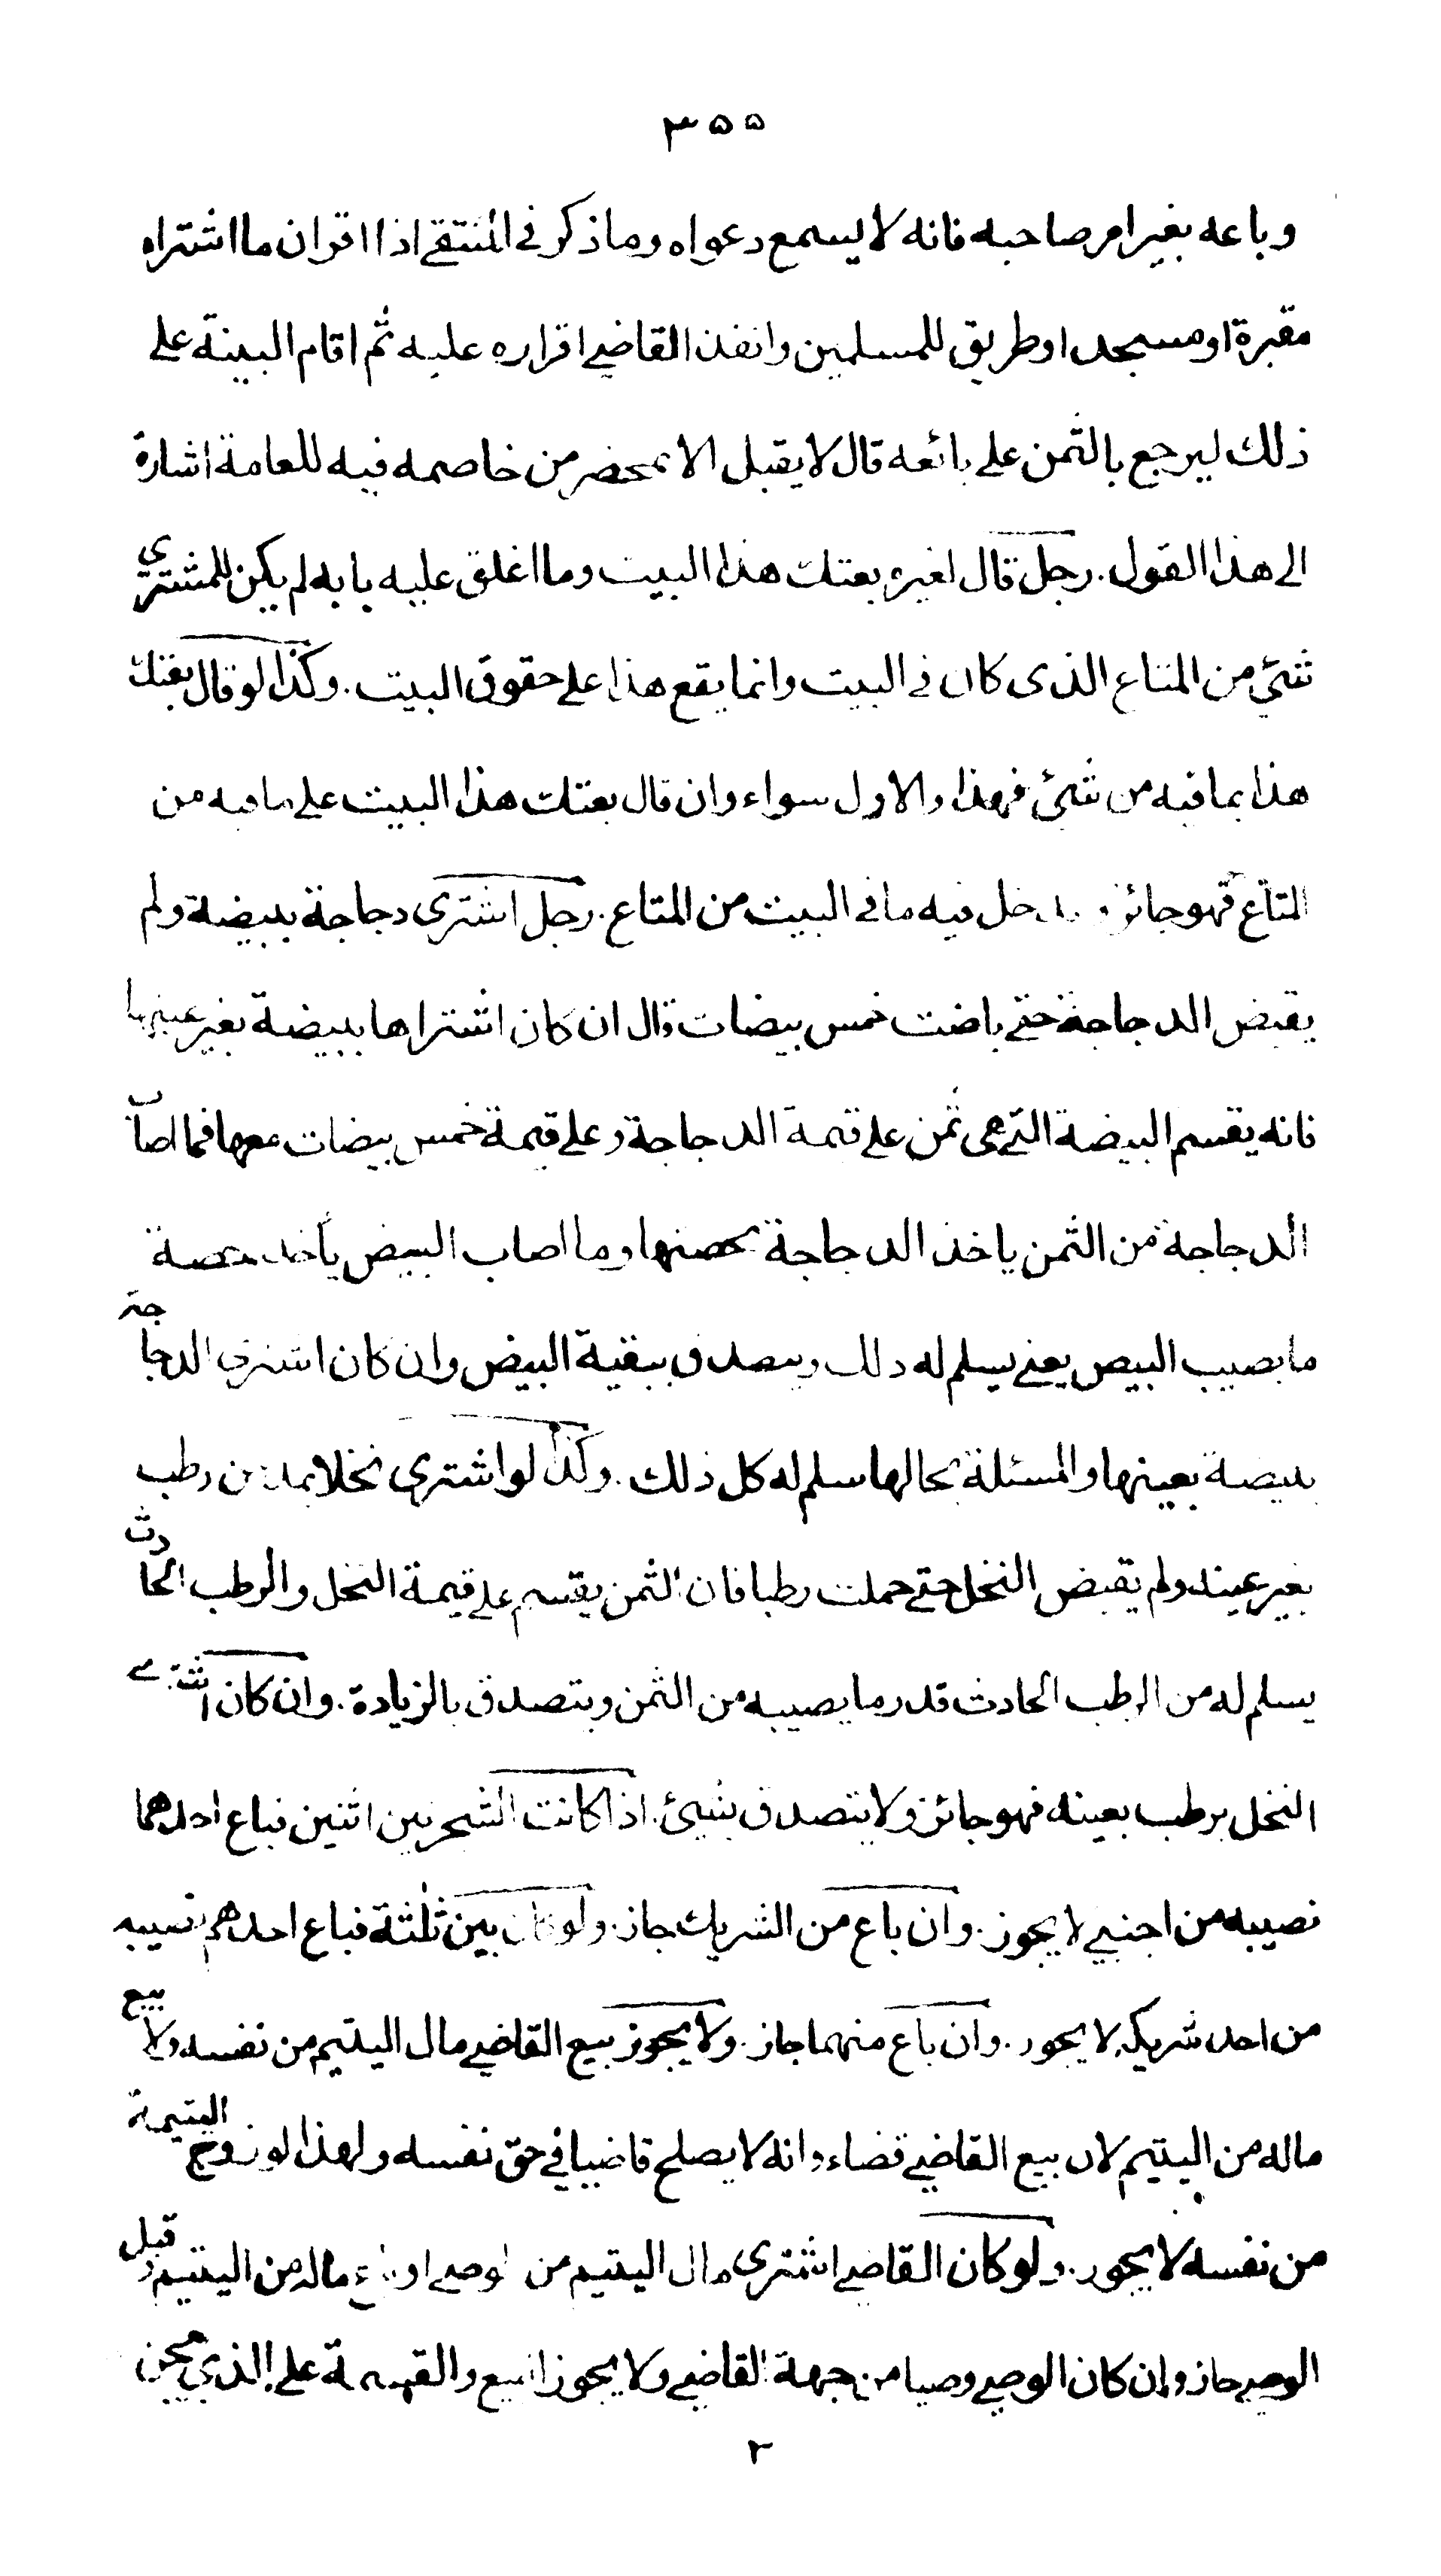 ٣٥٥
وباعه بغير امر صاحبه فانه لا يسمع دعواه وما ذكر في المنتقے اذا اقر ان ما اشتراه
مقبرة او مسجد او طريق للمسلمين وانفذ القاضے اقراره عليه ثم اقام البينة علے
ذلك ليرجع بالثمن علے بائعه قال لا يقبل الا بمحضر من خاصمه فيه للعامة اشارة
الى هذا القول. رجل قال لغيره بعتك هذا البيت وما اغلق عليه بابه لم يكن للمشتري
شئ من المتاع الذى كان في البيت وانما يقع هذا علے حقوق البيت. وكذا لو قال بعتك
هذا بما فيه من شئ فهذا والاول سواء وان قال بعتك هذا البيت علے ما فيه من
المتاع فهو جائز ويدخل فيه ما في البيت من المتاع. رجل اشترى دجاجة ببيضة ولم
يقبض الدجاجة حتے باضت خمس بيضات قال ان كان اشتراها ببيضة بغير عينها
فانه يقسم البيضة التے هى ثمن علے قيمة الدجاجة وعلے قيمة خمس بيضات معها فما اصاب
الدجاجة من الثمن ياخذ الدجاجة بحصتها وما اصاب البيض يأخذ حصة
ما يصيب البيض يعنے يسلم له ذلك ويتصدق ببقية البيض وان كان اشترى الدجاجة
ببيضة بعينها والمسئلة بحالها سلم له كل ذلك. وكذا لو اشترى نخلا بمد من رطب
بغير عينه ولم يقبض النخل حتے حملت رطبا فان الثمن يقسم علے قيمة النخل والرطب الحادث
يسلم له من الرطب الحادث قدر ما يصيبه من الثمن ويتصدق بالزيادة. وان كان اشترے
النخل برطب بعينه فهو جائز ولا يتصدق بشئ. اذا كانت الشجر بين اثنين فباع احدهما
نصيبه من اجنبے لا يجوز. وان باع من الشريك جاز. ولو كان بين ثلثة فباع احدهم نصيبه
من احد شريكيه لا يجوز. وان باع منهما جاز. ولا يجوز بيع القاضے مال اليتيم من نفسه ولا بيع
ماله من اليتيم لان بيع القاضے قضاء وانه لا يصلح قاضيا في حق نفسه ولهذا لو زوج اليتيمة
من نفسه لا يجوز. ولو كان القاضے اشترى مال اليتيم من الوصے او باع ماله من اليتيم وقبل
الوصے جاز وان كان الوصے وصيا من جهة القاضے ولا يجوز البيع والقسمة علے الذي يجن
٢